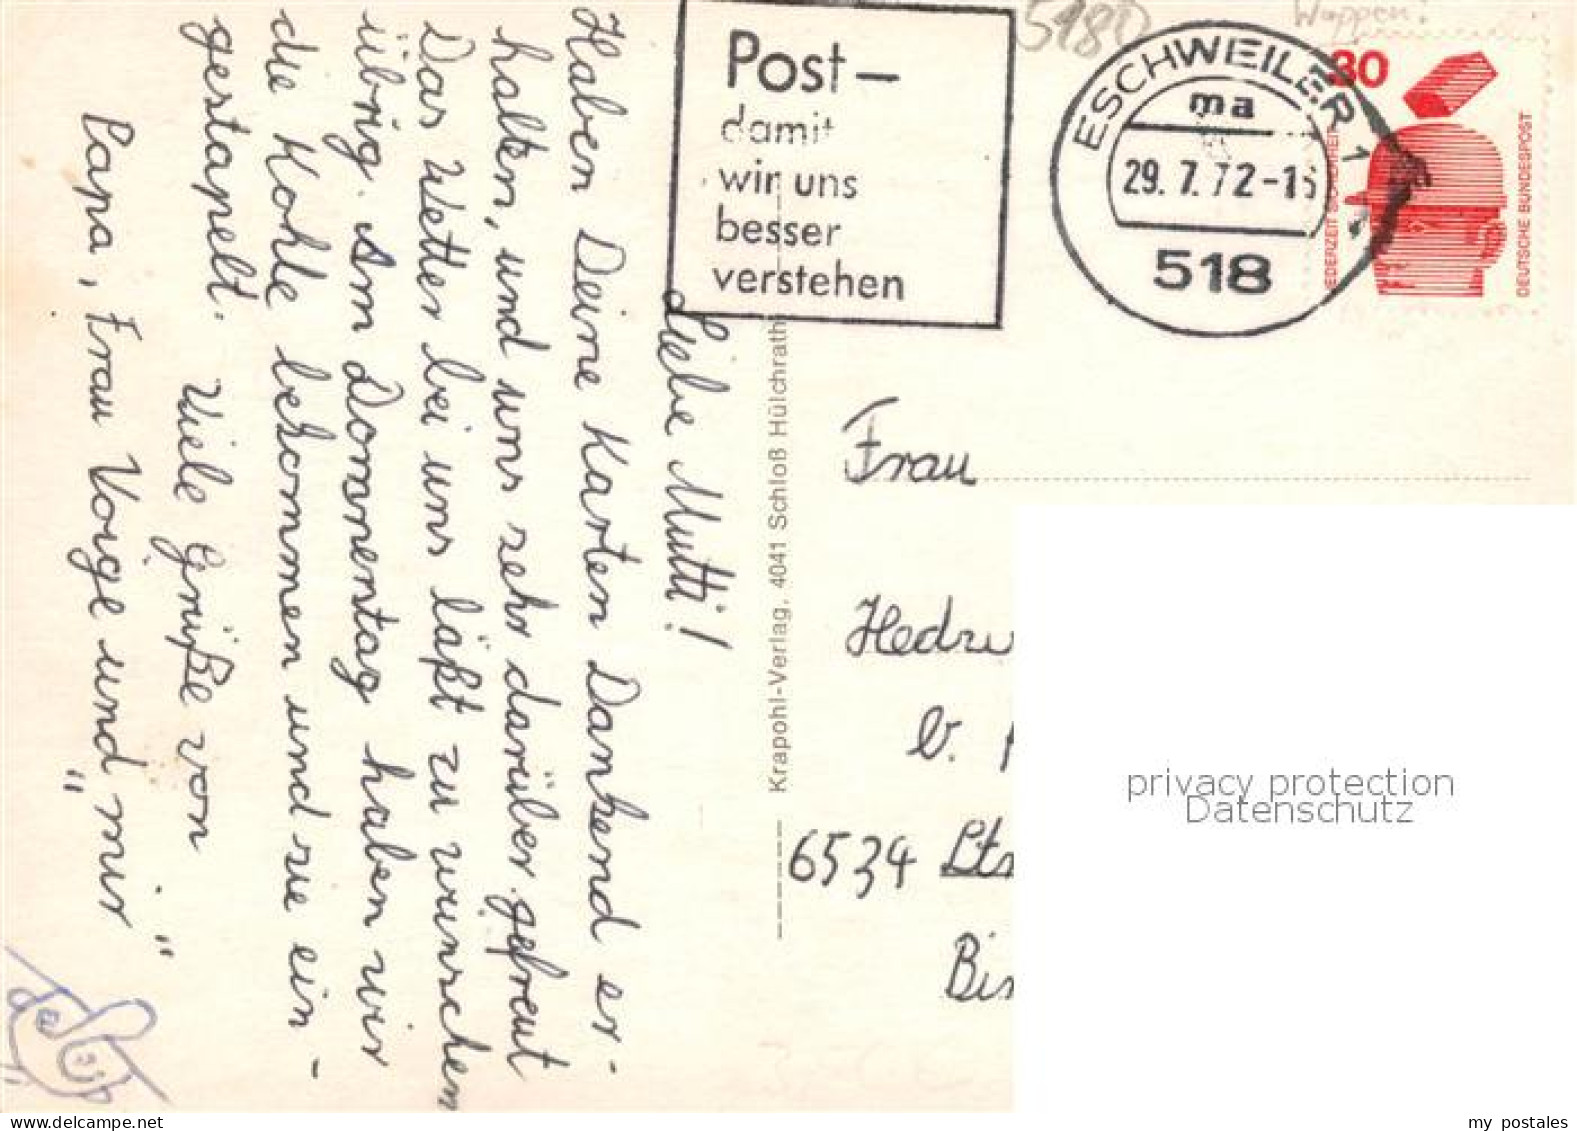 Liebe Mutti!
Haben Deine Karten Dankend er-
halten, und uns sehr darüber gefreut
Das Wetter bei uns läßt zu wünschen
übrig. Am Donnerstag haben wir
die Kohle bekommen und sie ein-
gestapelt. Viele Grüße von
Papa, Frau Voige und "mir"
Krapohl-Verlag, 4041 Schloß Hülchrath
Post –
damit
wir uns
besser
verstehen
5180
Wappen!
ESCHWEILER 1
ma
29.7.72-15
518
30
JEDERZEIT SICHERHEIT
DEUTSCHE BUNDESPOST
Frau
6534
privacy protection
Datenschutz
my postales
www.delcampe.net